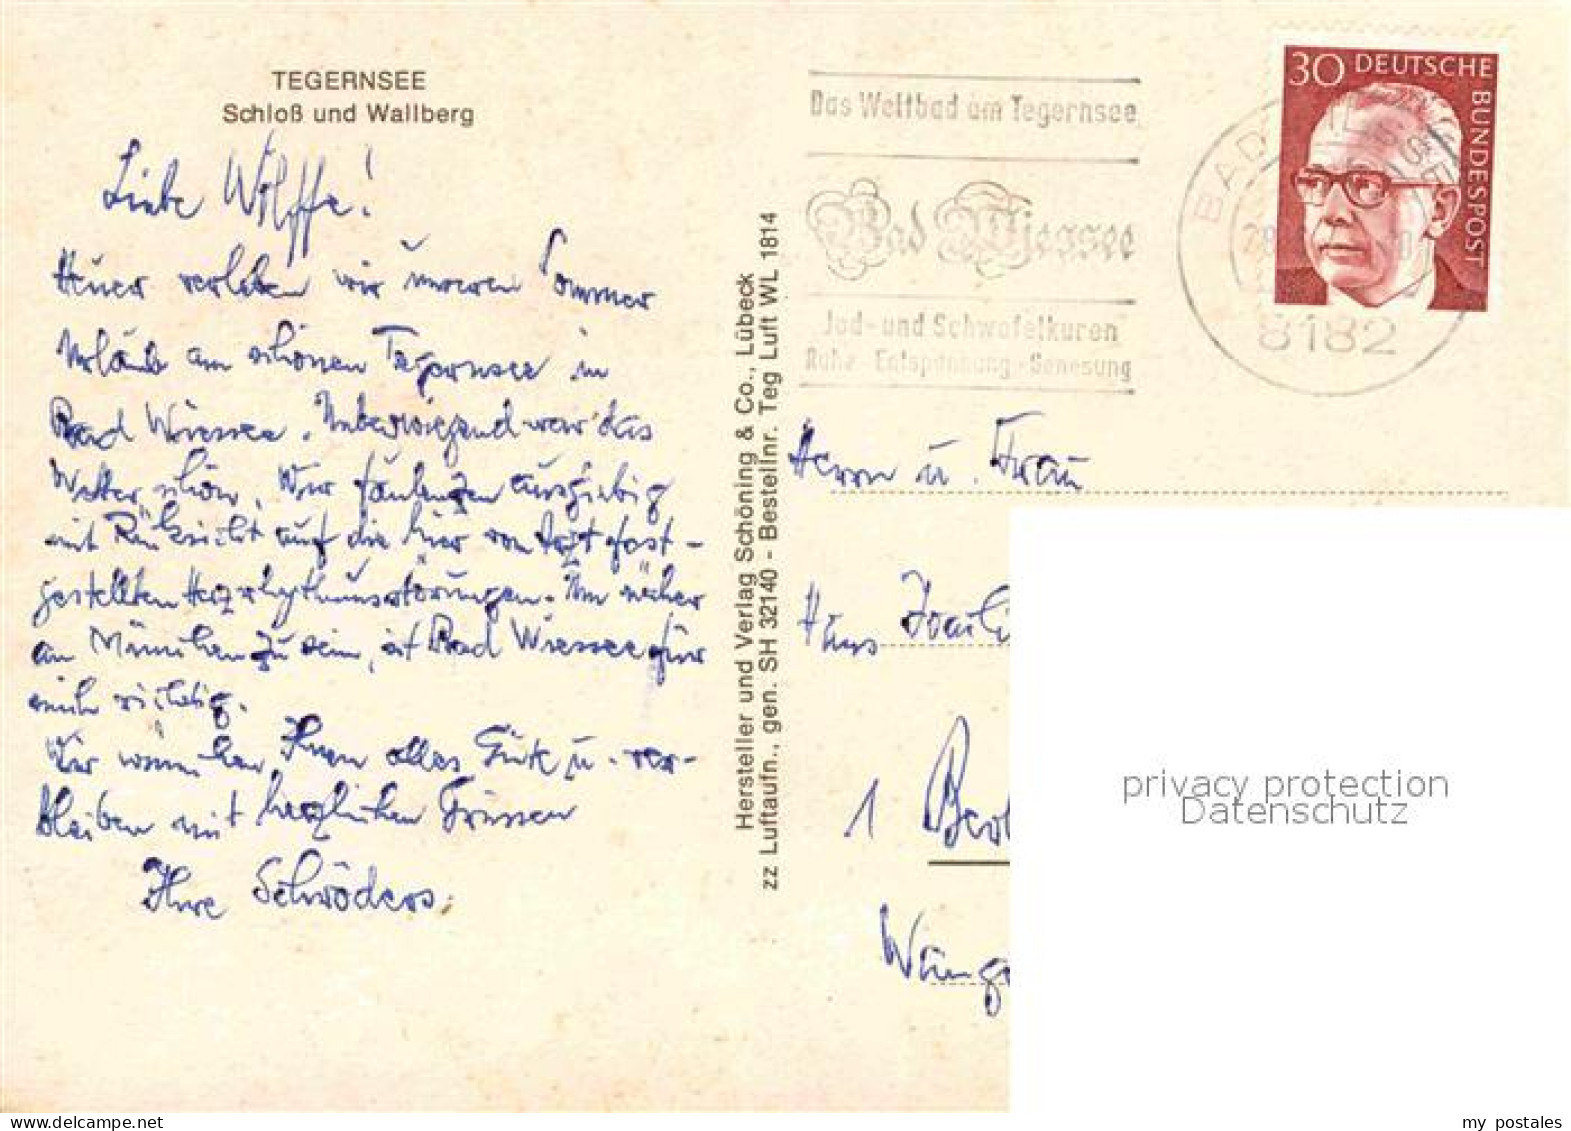 TEGERNSEE
Schloß und Wallberg
Liebe Wolffe!
Heuer verleben wir unseren Sommer
urlaub am schönen Tegernsee in
Bad Wiessee. Überwiegend war das
Wetter schön. Wir faulenzen ausgiebig
mit Rücksicht auf die hier vom Arzt fest-
gestellten Herzrhythmusstörungen. Um näher
an München zu sein, ist Bad Wiessee für
mich richtig.
Wir wünschen Ihnen alles Gute u. ver-
bleiben mit herzlichen Grüssen
Ihre Schröders.
Hersteller und Verlag Schöning & Co., Lübeck
zz Luftaufn., gen. SH 32140 - Bestellnr. Teg Luft WL 1814
Das Weltbad am Tegernsee
Bad Wiessee
Jod- und Schwefelkuren
Ruhe - Entspannung - Genesung
BAD WIESSEE
8182
30 DEUTSCHE BUNDESPOST
Herrn u. Frau
Hans
1 Berl
privacy protection
Datenschutz
my postales